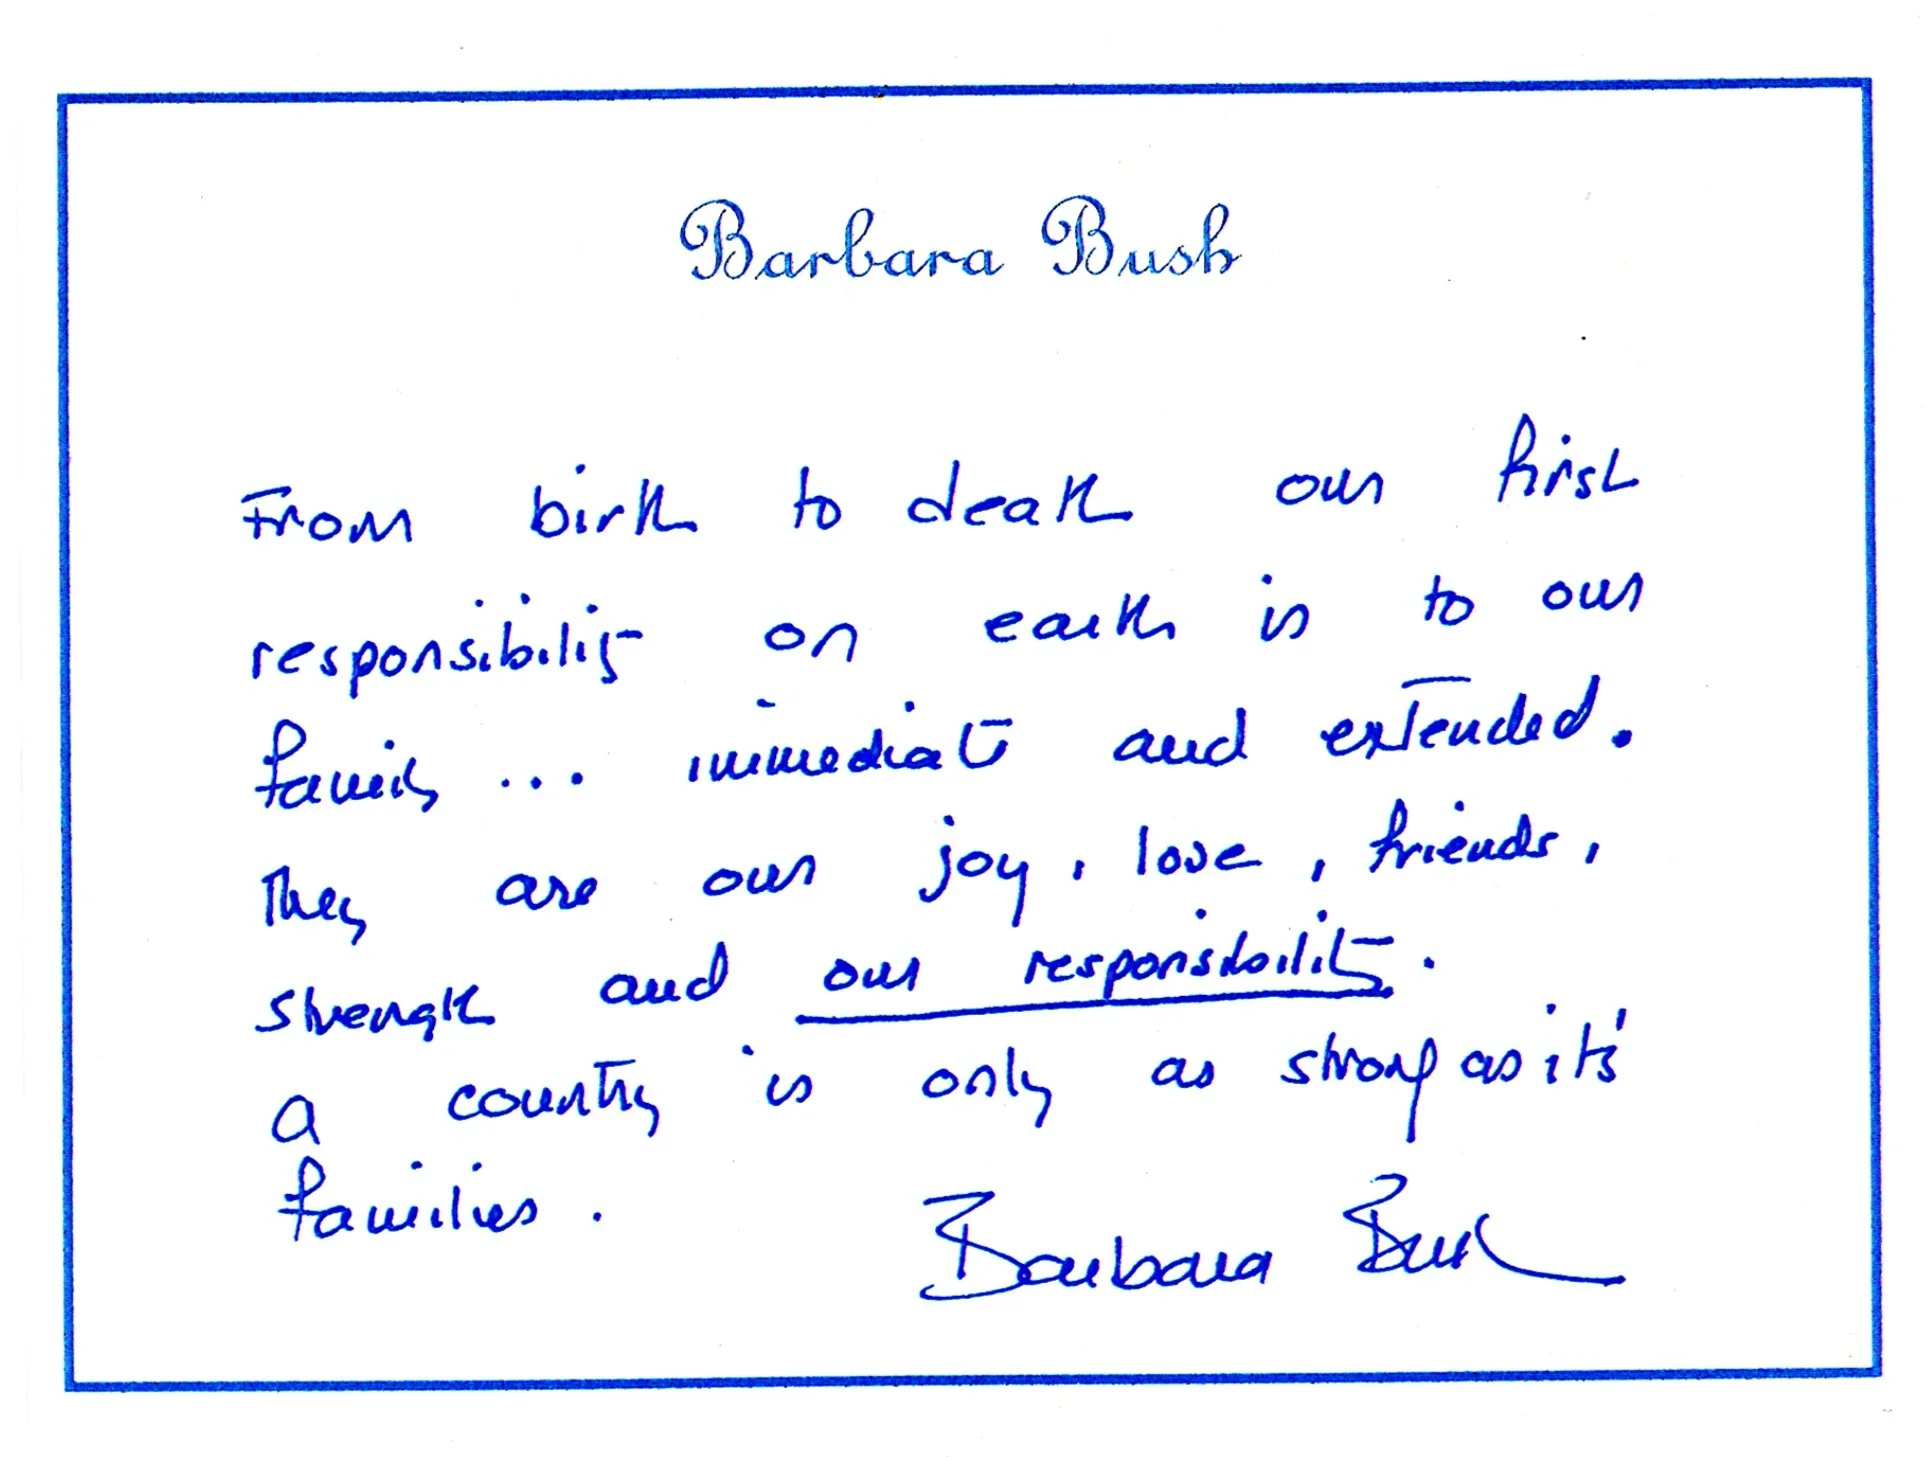 Barbara Bush
From birth to death our first
responsibility on earth is to our
family ... immediate and extended.
They are our joy, love, friends,
strength and our responsibility.
a country is only as strong as it's
families.
Barbara Bush